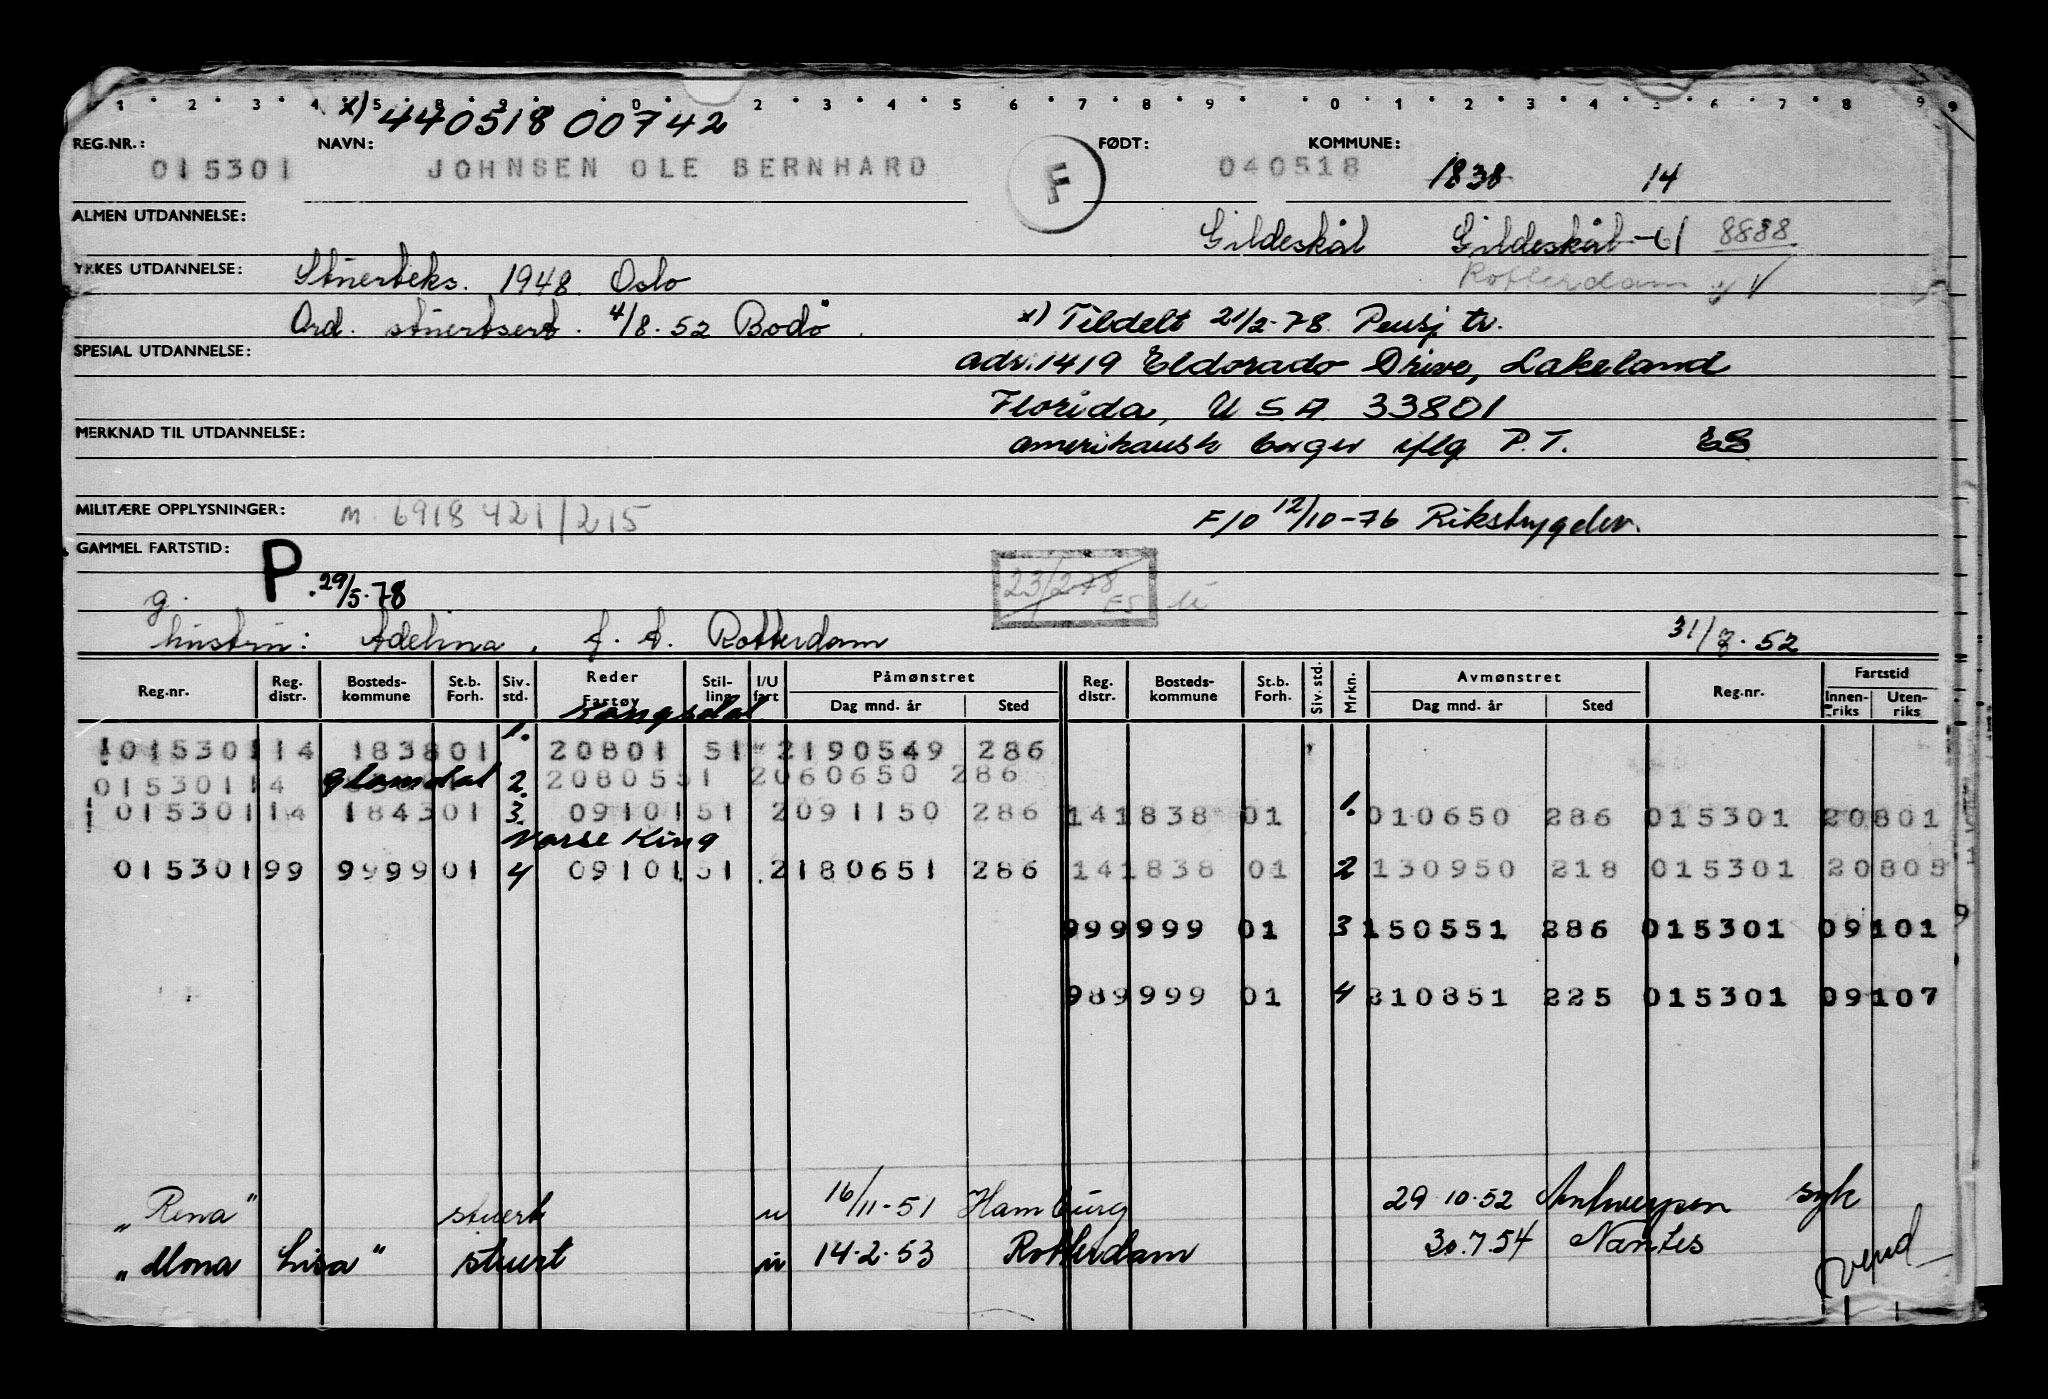 1 2 3 4 5 8 9 0 2 3 4 5 6 7 8 9 0 1 2 3 4 5 6 7 8 9
x) 440518 00742
REG.NR.: NAVN: FØDT: KOMMUNE:
015301 JOHNSEN OLE BERNHARD F 040518 1838 14
ALMEN UTDANNELSE:
Gildeskål Gildeskål-61 8888
YRKES UTDANNELSE: Stuerteks. 1948 Oslo Rotterdam
Ord. stuertsert. 4/8.52 Bodø. x) Tildelt 21/2-78 Pensj tr.
SPESIAL UTDANNELSE:
adr. 1419 Eldorado Drive, Lakeland
Florida, U S A 33801
MERKNAD TIL UTDANNELSE: amerikansk borger iflg P.T. ES
MILITÆRE OPPLYSNINGER: M 6918 421/215 F/O 12/10-76 Rikstrygdev.
GAMMEL FARTSTID: P. 29/5-78 23/2-78 ES
g.
hustru: Adelina, f. A. Rotterdam 31/7.52
Reg.nr. Reg. distr. Bosteds- kommune St.b. Forh. Siv. std. Reder Fartøy Stil- ling I/U fart Påmønstret Dag mnd. år Sted Reg. distr. Bosteds- kommune St.b. Forh. Siv. std. Mrkn. Avmønstret Dag mnd. år Sted Reg.nr. Fartstid Innen- riks Uten- riks
Kongsdal
015301 14 1838 01 1. 20801 51 2 190549 286
015301 14 Glomdal 2. 20805 51 2 060650 286
015301 14 1843 01 3. 09101 51 2 091150 286 14 1838 01 1. 010650 286 015301 20801
Norse King
015301 99 9999 01 4 09101 51 2 180651 286 14 1838 01 2 130950 218 015301 20805
99 9999 01 3 150551 286 015301 09101
989999 01 4 210851 225 015301 09107
"Rena" stuert u 16/11-51 Hamburg 29 10.52 Antwerpen syk
"Mona Lisa" stuert u 14.2.53 Rotterdam 30.7.54 Nantes
vend